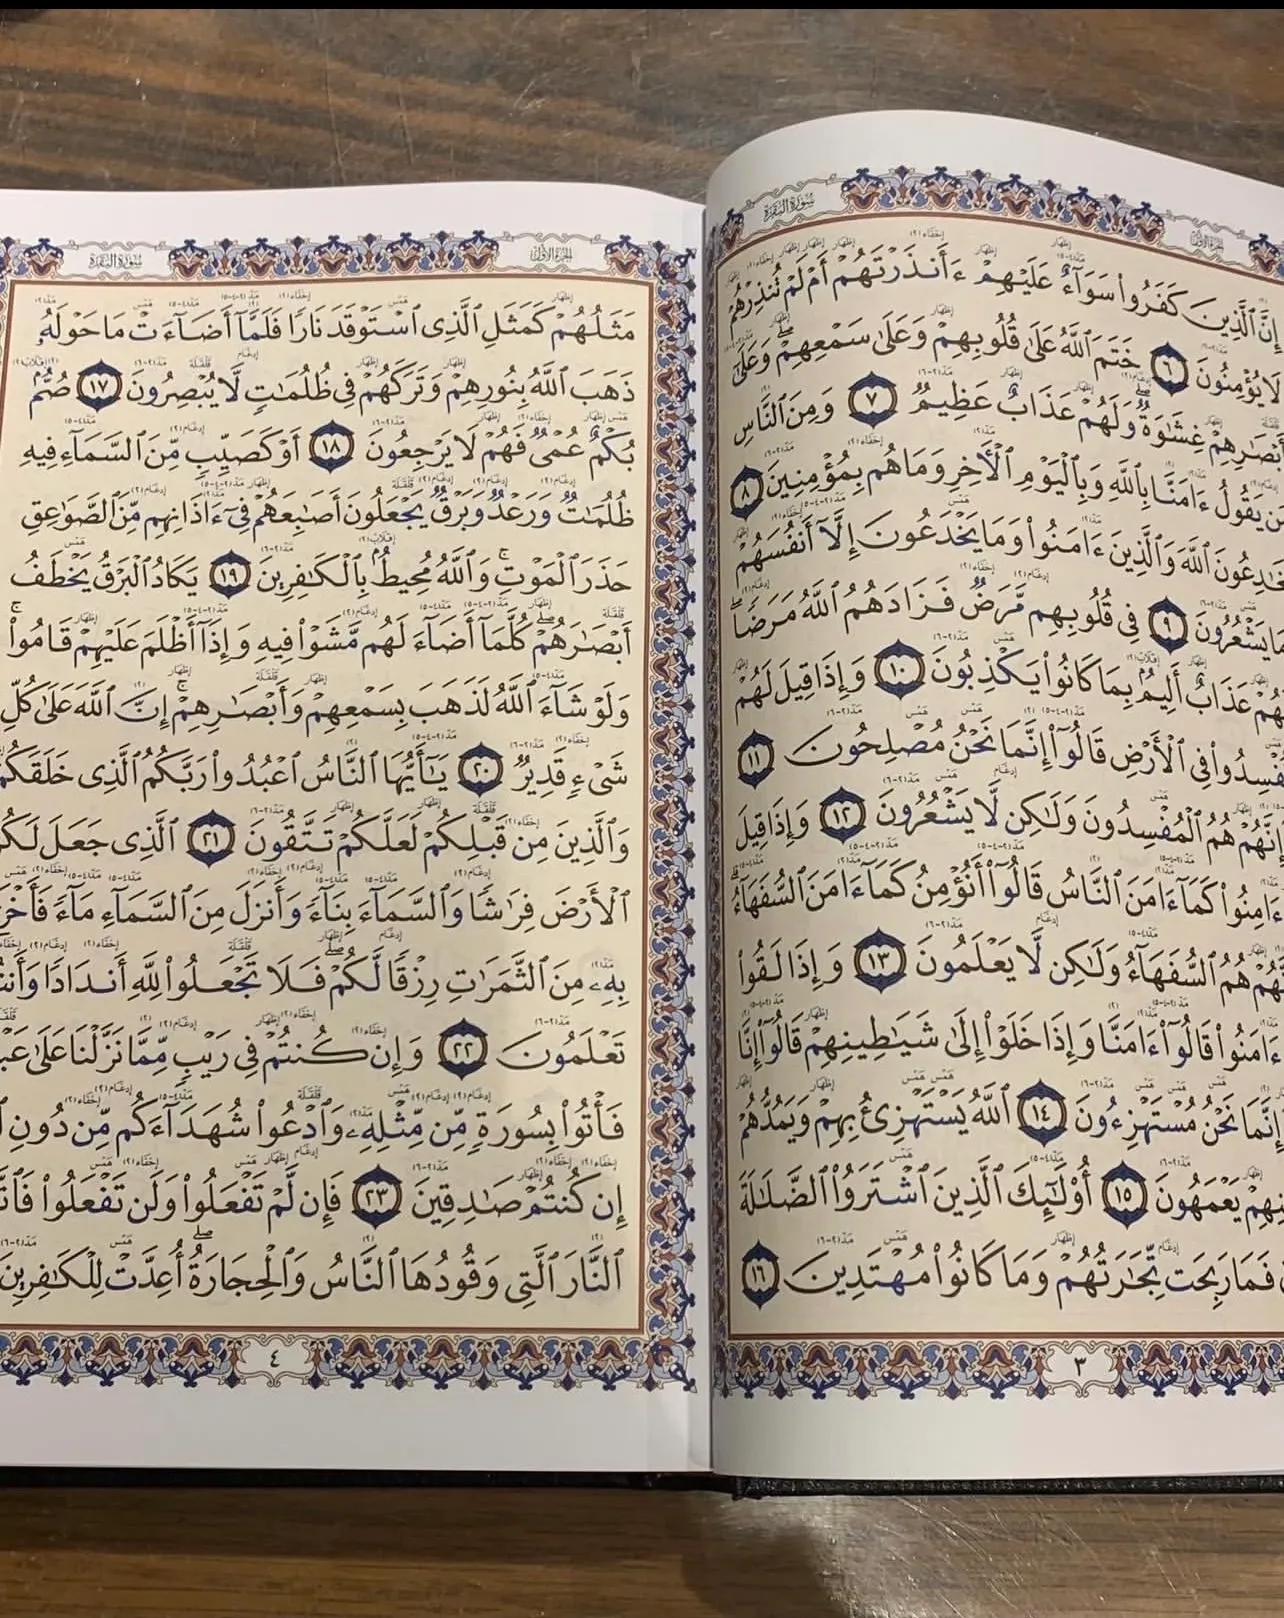 سورة البقرة
الجزء الأول
إِنَّ ٱلَّذِينَ كَفَرُوا۟ سَوَآءٌ عَلَيْهِمْ ءَأَنذَرْتَهُمْ أَمْ لَمْ تُنذِرْهُمْ
لَا يُؤْمِنُونَ ٦ خَتَمَ ٱللَّهُ عَلَىٰ قُلُوبِهِمْ وَعَلَىٰ سَمْعِهِمْ ۖ وَعَلَىٰٓ
أَبْصَٰرِهِمْ غِشَٰوَةٌ ۖ وَلَهُمْ عَذَابٌ عَظِيمٌ ٧ وَمِنَ ٱلنَّاسِ
مَن يَقُولُ ءَامَنَّا بِٱللَّهِ وَبِٱلْيَوْمِ ٱلْءَاخِرِ وَمَا هُم بِمُؤْمِنِينَ ٨
يُخَٰدِعُونَ ٱللَّهَ وَٱلَّذِينَ ءَامَنُوا۟ وَمَا يَخْدَعُونَ إِلَّآ أَنفُسَهُمْ
وَمَا يَشْعُرُونَ ٩ فِى قُلُوبِهِم مَّرَضٌ فَزَادَهُمُ ٱللَّهُ مَرَضًا ۖ
وَلَهُمْ عَذَابٌ أَلِيمٌۢ بِمَا كَانُوا۟ يَكْذِبُونَ ١٠ وَإِذَا قِيلَ لَهُمْ
تُفْسِدُوا۟ فِى ٱلْأَرْضِ قَالُوٓا۟ إِنَّمَا نَحْنُ مُصْلِحُونَ ١١
إِنَّهُمْ هُمُ ٱلْمُفْسِدُونَ وَلَٰكِن لَّا يَشْعُرُونَ ١٢ وَإِذَا قِيلَ
ءَامِنُوا۟ كَمَآ ءَامَنَ ٱلنَّاسُ قَالُوٓا۟ أَنُؤْمِنُ كَمَآ ءَامَنَ ٱلسُّفَهَآءُ ۗ
إِنَّهُمْ هُمُ ٱلسُّفَهَآءُ وَلَٰكِن لَّا يَعْلَمُونَ ١٣ وَإِذَا لَقُوا۟
ءَامَنُوا۟ قَالُوٓا۟ ءَامَنَّا وَإِذَا خَلَوْا۟ إِلَىٰ شَيَٰطِينِهِمْ قَالُوٓا۟ إِنَّا
إِنَّمَا نَحْنُ مُسْتَهْزِءُونَ ١٤ ٱللَّهُ يَسْتَهْزِئُ بِهِمْ وَيَمُدُّهُمْ
يَعْمَهُونَ ١٥ أُو۟لَٰٓئِكَ ٱلَّذِينَ ٱشْتَرَوُا۟ ٱلضَّلَٰلَةَ
فَمَا رَبِحَت تِّجَٰرَتُهُمْ وَمَا كَانُوا۟ مُهْتَدِينَ ١٦
٣
سورة البقرة
الجزء الأول
مَثَلُهُمْ كَمَثَلِ ٱلَّذِى ٱسْتَوْقَدَ نَارًا فَلَمَّآ أَضَآءَتْ مَا حَوْلَهُۥ
ذَهَبَ ٱللَّهُ بِنُورِهِمْ وَتَرَكَهُمْ فِى ظُلُمَٰتٍ لَّا يُبْصِرُونَ ١٧ صُمٌّۢ
بُكْمٌ عُمْىٌ فَهُمْ لَا يَرْجِعُونَ ١٨ أَوْ كَصَيِّبٍ مِّنَ ٱلسَّمَآءِ فِيهِ
ظُلُمَٰتٌ وَرَعْدٌ وَبَرْقٌ يَجْعَلُونَ أَصَٰبِعَهُمْ فِىٓ ءَاذَانِهِم مِّنَ ٱلصَّوَٰعِقِ
حَذَرَ ٱلْمَوْتِ ۚ وَٱللَّهُ مُحِيطٌۢ بِٱلْكَٰفِرِينَ ١٩ يَكَادُ ٱلْبَرْقُ يَخْطَفُ
أَبْصَٰرَهُمْ ۖ كُلَّمَآ أَضَآءَ لَهُم مَّشَوْا۟ فِيهِ وَإِذَآ أَظْلَمَ عَلَيْهِمْ قَامُوا۟ ۚ
وَلَوْ شَآءَ ٱللَّهُ لَذَهَبَ بِسَمْعِهِمْ وَأَبْصَٰرِهِمْ ۚ إِنَّ ٱللَّهَ عَلَىٰ كُلِّ
شَىْءٍ قَدِيرٌ ٢٠ يَٰٓأَيُّهَا ٱلنَّاسُ ٱعْبُدُوا۟ رَبَّكُمُ ٱلَّذِى خَلَقَكُمْ
وَٱلَّذِينَ مِن قَبْلِكُمْ لَعَلَّكُمْ تَتَّقُونَ ٢١ ٱلَّذِى جَعَلَ لَكُمُ
ٱلْأَرْضَ فِرَٰشًا وَٱلسَّمَآءَ بِنَآءً وَأَنزَلَ مِنَ ٱلسَّمَآءِ مَآءً فَأَخْرَجَ
بِهِۦ مِنَ ٱلثَّمَرَٰتِ رِزْقًا لَّكُمْ ۖ فَلَا تَجْعَلُوا۟ لِلَّهِ أَندَادًا وَأَنتُمْ
تَعْلَمُونَ ٢٢ وَإِن كُنتُمْ فِى رَيْبٍ مِّمَّا نَزَّلْنَا عَلَىٰ
فَأْتُوا۟ بِسُورَةٍ مِّن مِّثْلِهِۦ وَٱدْعُوا۟ شُهَدَآءَكُم مِّن دُونِ
إِن كُنتُمْ صَٰدِقِينَ ٢٣ فَإِن لَّمْ تَفْعَلُوا۟ وَلَن تَفْعَلُوا۟
ٱلنَّارَ ٱلَّتِى وَقُودُهَا ٱلنَّاسُ وَٱلْحِجَارَةُ ۖ أُعِدَّتْ لِلْكَٰفِرِينَ
٤